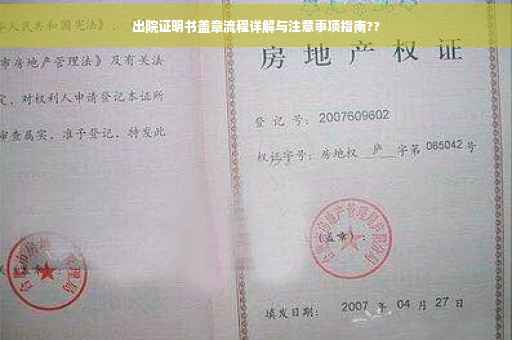 出院证明书盖章流程详解与注意事项指南??
人民共和国宪法》、
市房地产管理法》及有关法
定，对权利人申请登记本证所
审查属实，准予登记，特发此
房地产权证
登记号：2007609602
权证字号：房地权 庐 字第 085042 号
(盖章)：
填发日期： 2007 年 04 月 27 日